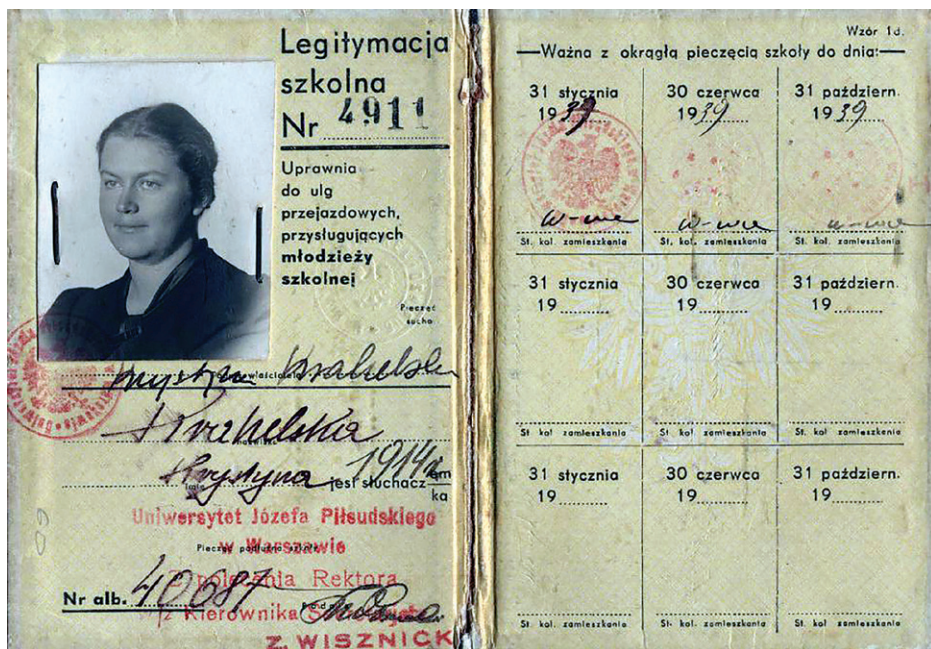 Legitymacja
szkolna
Nr 4911
Uprawnia
do ulg
przejazdowych,
przysługujących
młodzieży
szkolnej
Pieczęć
sucha
Krystyna Krahelska
Krahelska
Krystyna 1914 r.
jest słuchacz em
ka
Uniwersytet Józefa Piłsudskiego
w Warszawie
Pieczęć podłużna szkoły
Z polecenia Rektora
Nr alb. 40687
Kierownika
Z. WISZNICK
Wzór 1d.
Ważna z okrągłą pieczęcią szkoły do dnia:
31 stycznia 30 czerwca 31 październ.
1939 1939 1939
W-wa W-wa W-wa
St. kol. zamieszkania St. kol. zamieszkania St. kol. zamieszkania
31 stycznia 30 czerwca 31 październ.
19 19 19
St. kol. zamieszkania St. kol. zamieszkania St. kol. zamieszkania
31 stycznia 30 czerwca 31 październ.
19 19 19
St. kol. zamieszkania St. kol. zamieszkania St. kol. zamieszkania